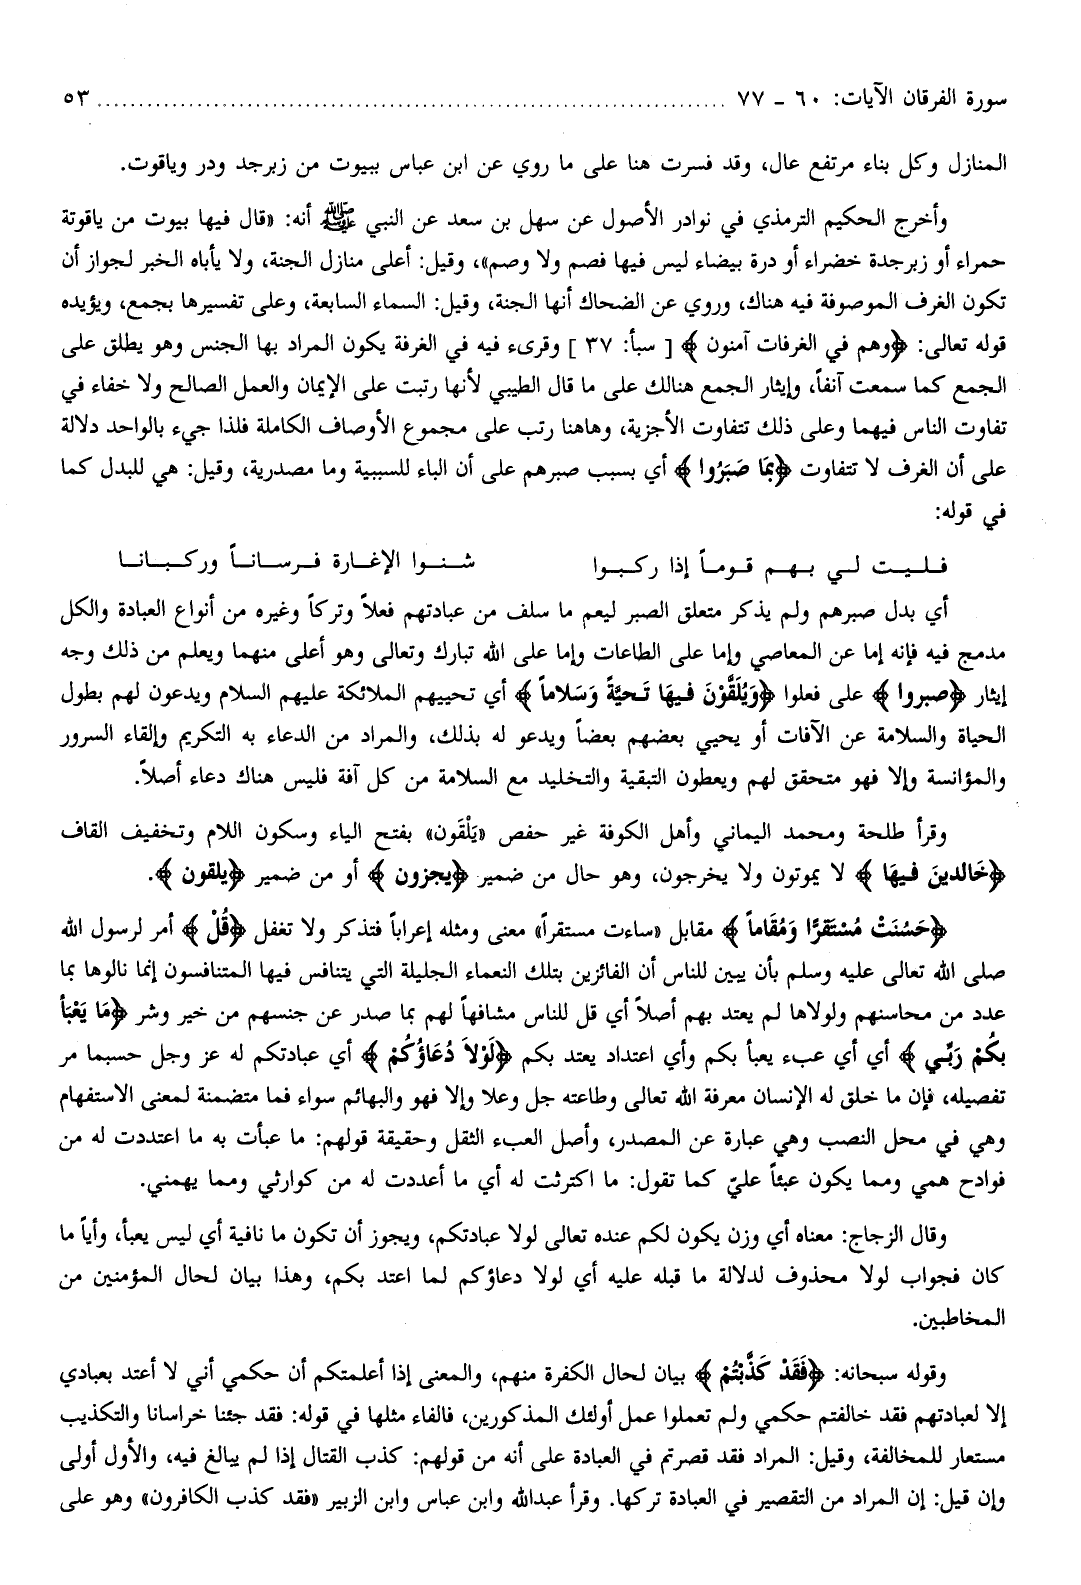 سورة الفرقان الآيات: ٦٠ ـ ٧٧ ........................................................................ ٥٣
المنازل وكل بناء مرتفع عال، وقد فسرت هنا على ما روي عن ابن عباس ببيوت من زبرجد ودر وياقوت.
وأخرج الحكيم الترمذي في نوادر الأصول عن سهل بن سعد عن النبي ﷺ أنه: «قال فيها بيوت من ياقوتة
حمراء أو زبرجدة خضراء أو درة بيضاء ليس فيها فصم ولا وصم»، وقيل: أعلى منازل الجنة، ولا يأباه الخبر لجواز أن
تكون الغرف الموصوفة فيه هناك، وروي عن الضحاك أنها الجنة، وقيل: السماء السابعة، وعلى تفسيرها بجمع، ويؤيده
قوله تعالى: ﴿وهم في الغرفات آمنون﴾ [ سبأ: ٣٧ ] وقرىء فيه في الغرفة يكون المراد بها الجنس وهو يطلق على
الجمع كما سمعت آنفاً، وإيثار الجمع هنالك على ما قال الطيبي لأنها رتبت على الإيمان والعمل الصالح ولا خفاء في
تفاوت الناس فيهما وعلى ذلك تتفاوت الأجزية، وهاهنا رتب على مجموع الأوصاف الكاملة فلذا جيء بالواحد دلالة
على أن الغرف لا تتفاوت ﴿بِمَا صَبَرُوا﴾ أي بسبب صبرهم على أن الباء للسببية وما مصدرية، وقيل: هي للبدل كما
في قوله:
فليت لي بهم قوماً إذا ركبوا شنوا الإغارة فرساناً وركبانا
أي بدل صبرهم ولم يذكر متعلق الصبر ليعم ما سلف من عبادتهم فعلاً وتركاً وغيره من أنواع العبادة والكل
مدمج فيه فإنه إما عن المعاصي وإما على الطاعات وإما على الله تبارك وتعالى وهو أعلى منهما ويعلم من ذلك وجه
إيثار ﴿صبروا﴾ على فعلوا ﴿وَيُلَقَّوْنَ فِيهَا تَحيَّةً وَسَلاماً﴾ أي تحييهم الملائكة عليهم السلام ويدعون لهم بطول
الحياة والسلامة عن الآفات أو يحيي بعضهم بعضاً ويدعو له بذلك، والمراد من الدعاء به التكريم وإلقاء السرور
والمؤانسة وإلا فهو متحقق لهم ويعطون التبقية والتخليد مع السلامة من كل آفة فليس هناك دعاء أصلاً.
وقرأ طلحة ومحمد اليماني وأهل الكوفة غير حفص «يَلْقَون» بفتح الياء وسكون اللام وتخفيف القاف
﴿خَالدينَ فيهَا﴾ لا يموتون ولا يخرجون، وهو حال من ضمير ﴿يجزون﴾ أو من ضمير ﴿يلقون﴾.
﴿حَسُنَتْ مُسْتَقرًّا وَمُقَاماً﴾ مقابل «ساءت مستقراً» معنى ومثله إعراباً فتذكر ولا تغفل ﴿قُلْ﴾ أمر لرسول الله
صلى الله تعالى عليه وسلم بأن يبين للناس أن الفائزين بتلك النعماء الجليلة التي يتنافس فيها المتنافسون إنما نالوها بما
عدد من محاسنهم ولولاها لم يعتد بهم أصلاً أي قل للناس مشافهاً لهم بما صدر عن جنسهم من خير وشر ﴿مَا يَعْبَأ
بكُمْ رَبِّي﴾ أي أي عبء يعبأ بكم وأي اعتداد يعتد بكم ﴿لَوْلاَ دُعَاؤُكُمْ﴾ أي عبادتكم له عز وجل حسبما مر
تفصيله، فإن ما خلق له الإنسان معرفة الله تعالى وطاعته جل وعلا وإلا فهو والبهائم سواء فما متضمنة لمعنى الاستفهام
وهي في محل النصب وهي عبارة عن المصدر، وأصل العبء الثقل وحقيقة قولهم: ما عبأت به ما اعتددت له من
فوادح همي ومما يكون عبئاً عليّ كما تقول: ما اكترثت له أي ما أعددت له من كوارثي ومما يهمني.
وقال الزجاج: معناه أي وزن يكون لكم عنده تعالى لولا عبادتكم، ويجوز أن تكون ما نافية أي ليس يعبأ، وأياً ما
كان فجواب لولا محذوف لدلالة ما قبله عليه أي لولا دعاؤكم لما اعتد بكم، وهذا بيان لحال المؤمنين من
المخاطبين.
وقوله سبحانه: ﴿فَقَدْ كَذَّبْتُمْ﴾ بيان لحال الكفرة منهم، والمعنى إذا أعلمتكم أن حكمي أني لا أعتد بعبادي
إلا لعبادتهم فقد خالفتم حكمي ولم تعملوا عمل أولئك المذكورين، فالفاء مثلها في قوله: فقد جئنا خراسانا والتكذيب
مستعار للمخالفة، وقيل: المراد فقد قصرتم في العبادة على أنه من قولهم: كذب القتال إذا لم يبالغ فيه، والأول أولى
وإن قيل: إن المراد من التقصير في العبادة تركها. وقرأ عبدالله وابن عباس وابن الزبير «فقد كذب الكافرون» وهو على